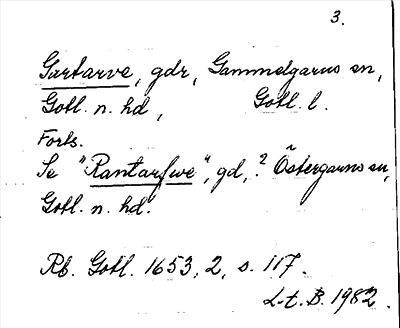 3.
Gartarve, gdr, Gammelgarns sn,
Gotl. n. hd, Gotl. l.
Forts.
Se "Rantarfwe", gd, ? Östergarns sn,
Gotl. n. hd.
Rb. Gotl. 1653, 2, s. 117.
L.t. B. 1982.